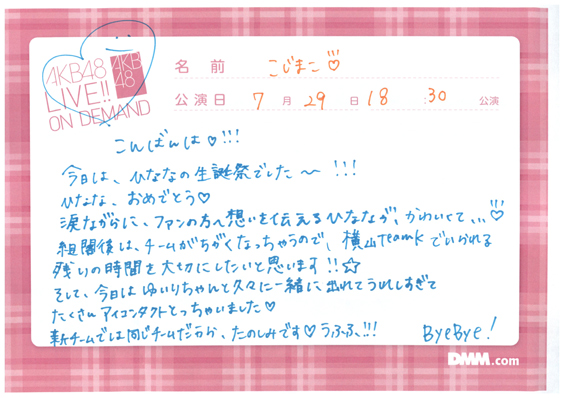 AKB48
LIVE!!
ON DEMAND
AKB
48
名 前 こじまこ♡
公演日 7 月 29 日 18 :30 公演
こんばんは♡!!!
今日は、ひななの生誕祭でした〜 !!!
ひなな、おめでとう♡
涙ながらに、ファンの方へ想いを伝えるひななが、かわいくて、、、♡
組閣後は、チームがちがくなっちゃうので、横山TeamKでいられる
残りの時間を大切にしたいと思います!!☆
そして、今日はゆいりちゃんと久々に一緒に出れてうれしすぎて
たくさんアイコンタクトとっちゃいました♡
新チームでは同じチームだから、たのしみです♡うふふ、!!!
ByeBye!
DMM.com